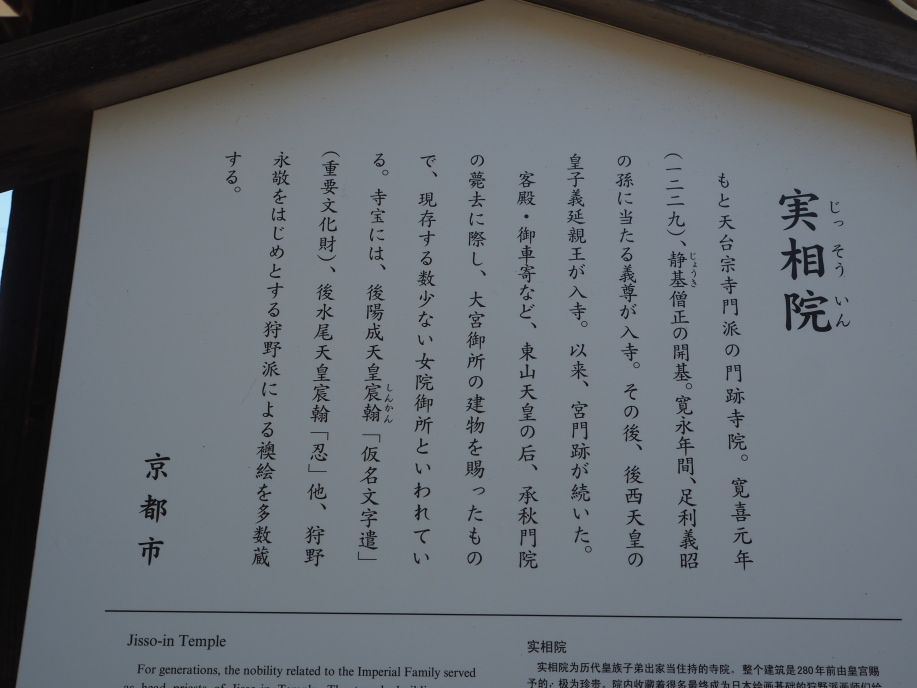 実相院
じっそういん
もと天台宗寺門派の門跡寺院。寛喜元年
(一二二九)、静基僧正の開基。寛永年間、足利義昭
じょうき
の孫に当たる義尊が入寺。その後、後西天皇の
皇子義延親王が入寺。以来、宮門跡が続いた。
客殿・御車寄など、東山天皇の后、承秋門院
の薨去に際し、大宮御所の建物を賜ったもの
で、現存する数少ない女院御所といわれてい
る。寺宝には、後陽成天皇宸翰「仮名文字遣」
しんかん
(重要文化財)、後水尾天皇宸翰「忍」他、狩野
永敬をはじめとする狩野派による襖絵を多数蔵
する。
京都市
Jisso-in Temple
For generations, the nobility related to the Imperial Family served
as head priests of Jisso-in Temple.
实相院
实相院为历代皇族子弟出家当住持的寺院。整个建筑是280年前由皇宫赐
予的,极为珍贵。院内收藏着很多最终成为日本绘画基础的狩野派画师们绘